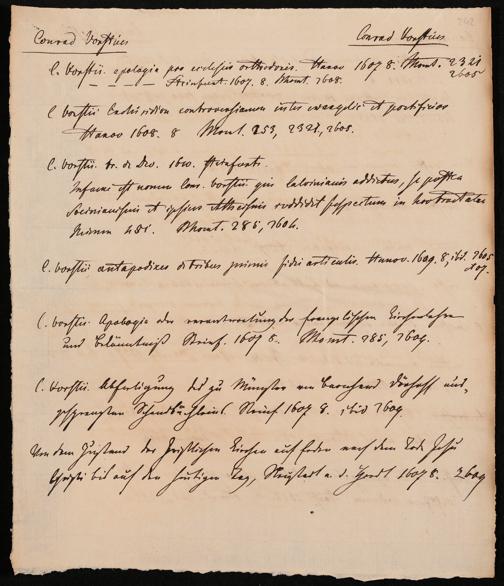 Conrad Vorstius Conrad Vorstius
C. Vorstii. apologia pro ecclesiis orthodoxis. Hanov 1607 8. Mont. 2321
Steinfurt. 1607. 8. Mont. 7608. 2605
C Vorstii Enchiridion controversiarum inter evangelic et pontificios
Hanov 1608. 8 Mont. 253, 2321, 2605.
C. Vorstii. tr. de Deo. 1610. Steinfurti.
Infame est nomen Conr. Vorstii qui Calvinianis addictus, se postea
Socinianismi et ipsius Atheismi reddidit suspectum in hoc tractatu
Mont. 285, 7604.
C. Vorstii antapodixis de tribus primis fidei articulis. Hanov. 1609. 8, ibid. 7605
C. Vorstii. Apologia oder verantwortung der Evangelischen Kirchenlehre
und Bekäntniß Steinf. 1607 8. Mont. 285, 7609.
C. Vorstii Abfertigung des zu Münster von
Steinf 1607 8. ibid 7609
Von dem Zustand der Christlichen Kirchen auf Erden nach dem Tode Jesu
Christi bis auf den heutigen Tag, Neustadt a. d. Hardt 1607 8. 2609